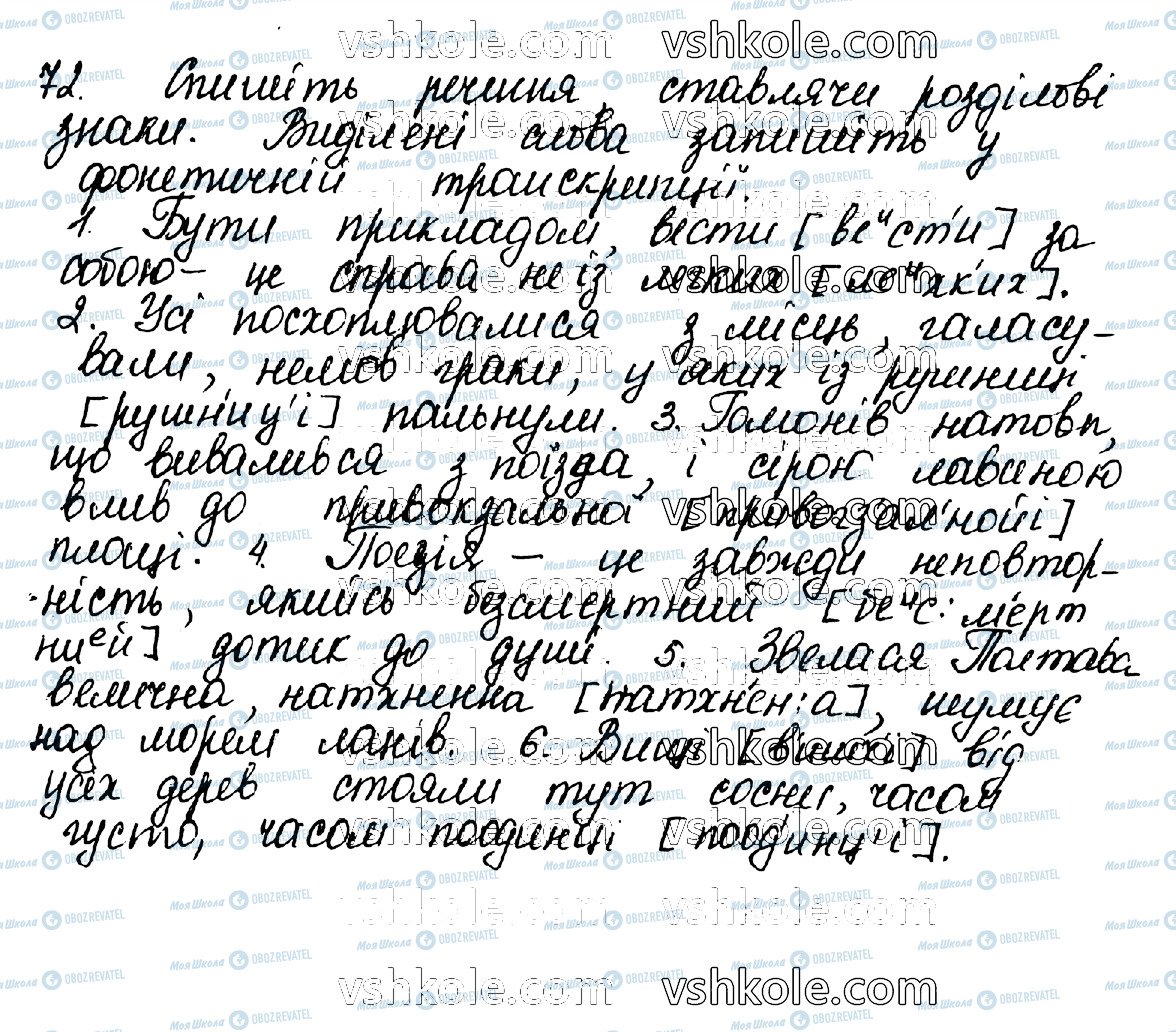 72. Спишіть речення, ставлячи розділові
знаки. Виділені слова запишіть у
фонетичній транскрипції.
1. Бути прикладом, вести [ веᶦсти́ ] за
собою – це справа не із легких [ леᶦхки́х ].
2. Усі посхоплювалися з місць, галасу-
вали, немов граки, у яких із рушниці
[рушни́ц'і] пальнули. 3. Гомонів натовп,
що вивалився з поїзда, і сірою лавиною
влив до привокзальної [привоґза́л'нойі]
площі. 4. Поезія – це завжди неповтор-
ність, якийсь безсмертний [беᶦс:ме́рт
ниᵉй] дотик до душі. 5. Звелася Полтава
велична, натхненна [натхне́н:а], шумує
над морем ланів. 6. Вищі [ви́шчі] від
усіх дерев стояли тут сосни, часом
густо, часом поодинці [пооди́нц'і].
vshkole.com
МояШкола OBOZREVATEL